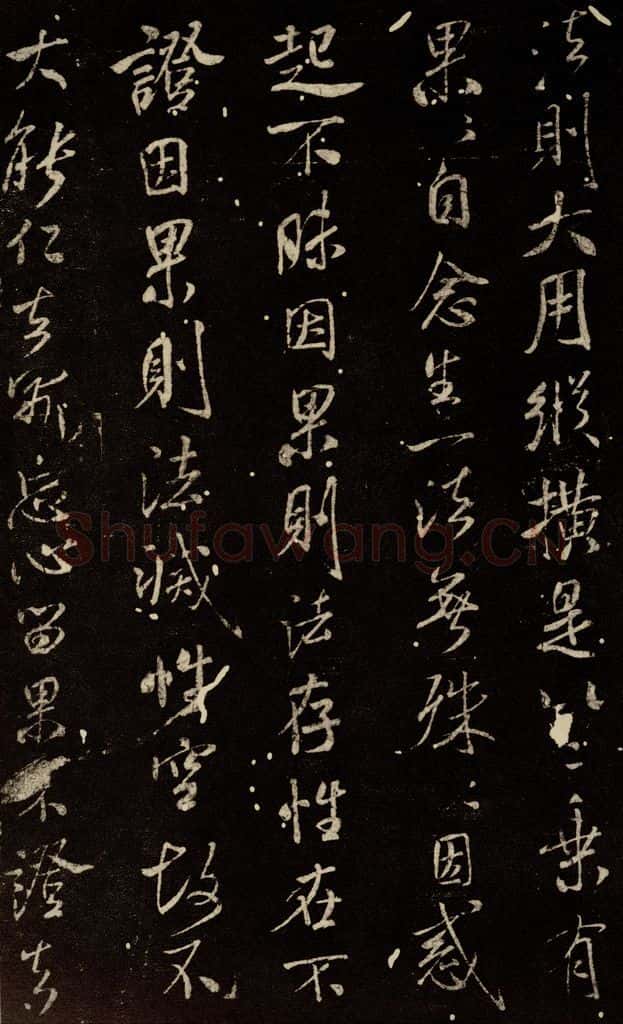 法則大用縱橫是以一乘有
果〻自念生一法無殊〻因感
起不昧因果則法存性在不
證因果則法滅性空故不
大能仁忘心留果不證
Shufawang.CN